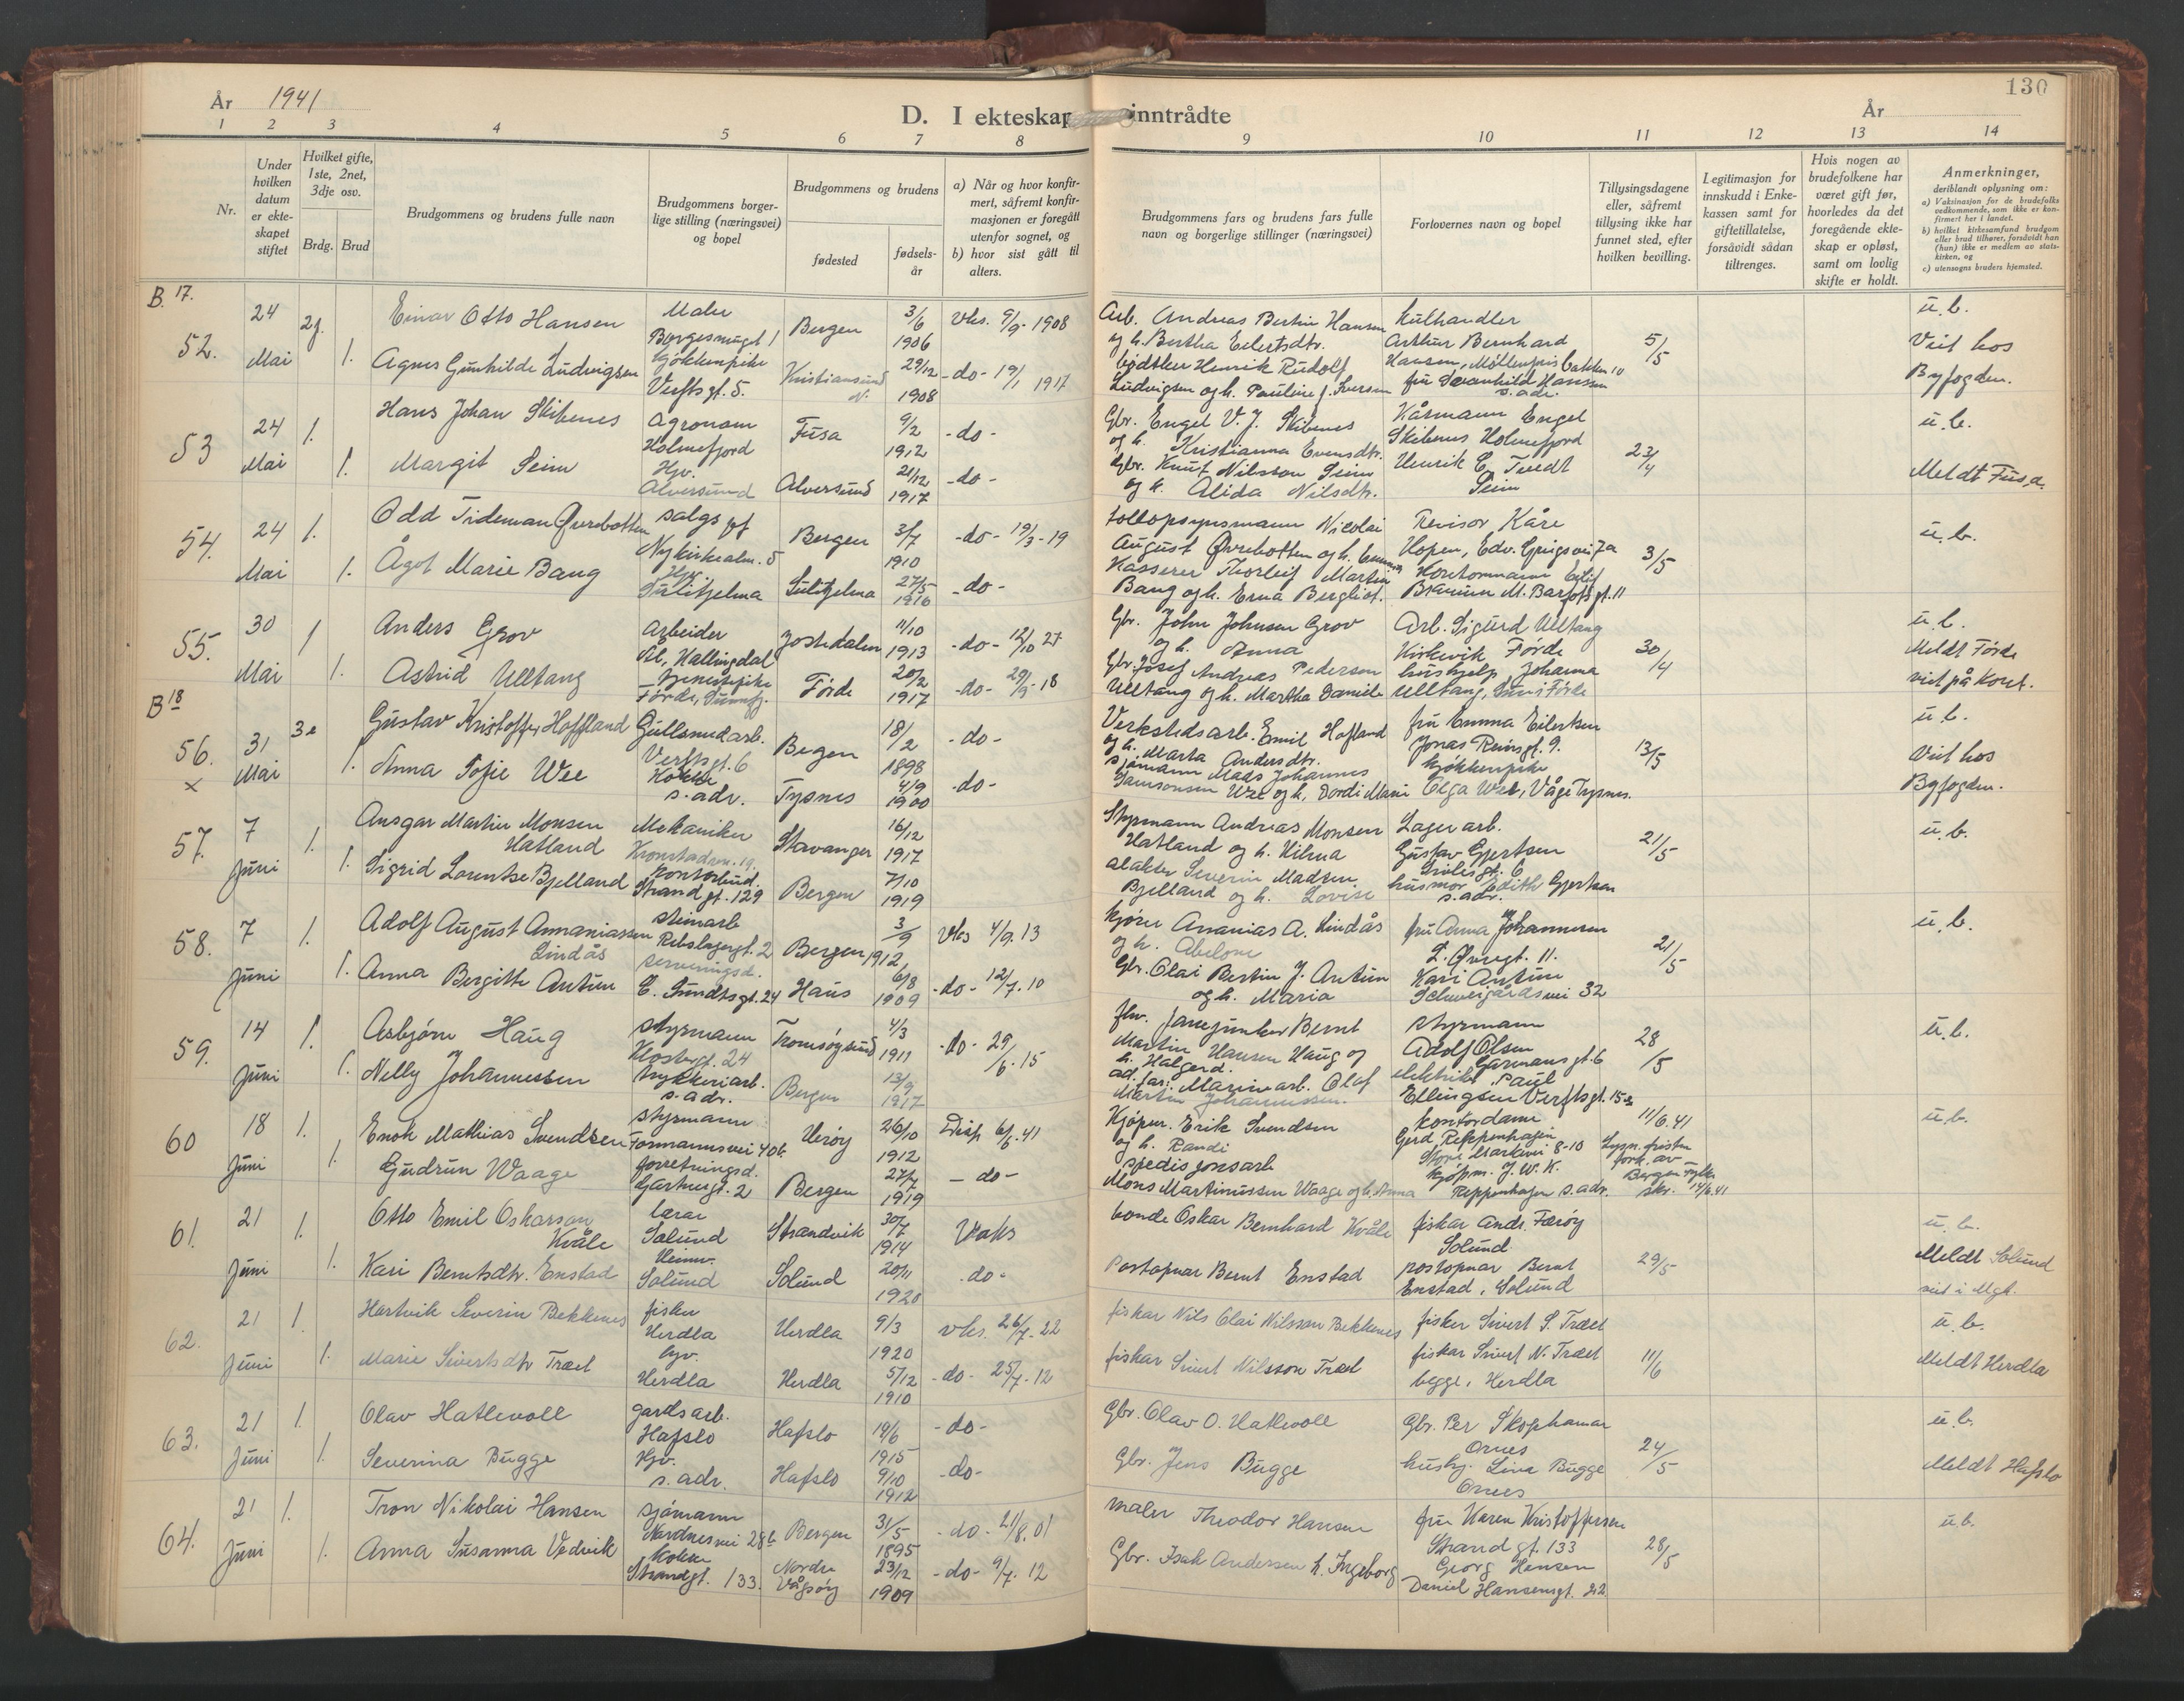 130
År 1941
D. I ekteskap inntrådte
År
1 2 3 4 5 6 7 8 9 10 11 12 13 14
Nr.
Under hvilken datum er ekteskapet stiftet
Hvilket gifte, 1ste, 2net, 3dje osv.
Brdg. Brud
Brudgommens og brudens fulle navn
Brudgommens borgerlige stilling (næringsvei) og bopel
Brudgommens og brudens
fødested
fødselsår
a) Når og hvor konfirmert, såfremt konfirmasjonen er foregått utenfor sognet, og
b) hvor sist gått til alters.
Brudgommens fars og brudens fars fulle navn og borgerlige stillinger (næringsvei)
Forlovernes navn og bopel
Tillysingsdagene eller, såfremt tillysing ikke har funnet sted, efter hvilken bevilling.
Legitimasjon for innskudd i Enkekassen samt for giftetillatelse, forsåvidt sådan tiltrenges.
Hvis nogen av brudefolkene har været gift før, hvorledes da det foregående ekteskap er opløst, samt om lovlig skifte er holdt.
Anmerkninger, deriblandt oplysning om:
a) Vaksinasjon for de brudefolks vedkommende, som ikke er konfirmert her i landet.
b) hvilket kirkesamfund brudgom eller brud tilhører, forsåvidt han (hun) ikke er medlem av statskirken, og
c) utensogns bruders hjemsted.
B. 17.
52. 24 Mai
Einar Otto Hansen Maler Bergen 3/6 1906 vks. 9/9-1908
Arb. Andreas Bertin Hansen og h. Bertha Eilertsdtr.
Kulhandler Arthur Bernhard Hansen, Möllenprisbakken 10
5/5
u. b.
Viet hos Byfogden.
1. Agnes Gunhilde Ludvigsen kjøkkenpike Verftsgt. 5. Kristiansund N. 29/12 1908 -do- 19/1 1917
bødtker Henrik Rudolf Ludvigsen og h. Pauline f. Iversen
s. adr.
53 24 Mai 1.
Hans Johan Skibenes Agronom Holmefjord Fusa 9/2 1912 -do-
Gbr. Engel V. J. Skibenes og h. Kristianna Evensdtr.
Kårmann Engel Skibenes Holmefjord
23/4
u. b.
Meldt Fusa.
1. Margit Seim Hv. Alversund Alversund 21/12 1917 -do-
Gbr. Knut Nilsson Seim og h. Alida Nilsdtr.
Henrik E. Tvedt Seim
54. 24 Mai 1.
Odd Tideman Øvrebotten salgs Nykirkealm. 5 Bergen 3/7 1910 -do- 19/3-19
tollopsynsmann Nicolai August Øvrebotten og h.
Revisor Kåre Hopen, Edv. Griegsvei 7a
3/5
u. b.
1. Ågot Marie Bang Hv. Sulitjelma Sulitjelma 27/5 1916 -do-
Kasserer Thorleif Martin Bang og h. Erna Bergliot.
Kontormann Eilif
55. 30 Mai 1
Anders Grov Arbeider Ål, Hallingdal Jostedalen 11/10 1913 -do- 12/10 27
Gbr. John Johnsen Grov og h. Anna
Arb. Sigurd Ulltang Kirkevik Førde
30/4
u. b.
Meldt Förde
viet på Kont.
1. Astrid Ulltang tjenestepike Førde, Sunnfj. Förde 20/2 1917 -do- 29/9-18
Gbr. Josef Andreas Pedersen Ulltang og h. Martha Daniels
hushjelp Johanna Ulltang, Förde
B 18
56. x 31 Mai 3e
Gustav Kristoffer Hoffland Gullsmedarb. Verftsgt. 6 Bergen 18/2 1898 -do-
Verkstedsarb. Emil Hofland og h. Marta Andersdtr.
fru Emma Eilertsen Jonas Reinsgt. 9.
13/5
u. b.
Viet hos Byfogden.
1. Anna Sofie Wee s. adr. Tysnes 4/9 1900 -do-
sjömann Mads Johannes Samsonsen Wee og h. Dordi Marie
kjøkkenpike Olga Wee, Våge Tysnes.
57. 7 Juni 1.
Ansgar Martin Monsen Hatland Mekaniker Kronstadvn. 19. Stavanger 16/12 1917
Styrmann Andreas Monsen Hatland og h. Hilma
Lagerarb. Gustav Gjertsen
21/5
u. b.
1. Sigrid Lorentse Bjelland kontorbud. Strandgt. 129 Bergen 7/10 1919
slakter Severin Madsen Bjelland og h. Lovise
husmor Edith Gjertsen s. adr.
58. 7 Juni 1.
Adolf August Annaniassen Lindås steinarb Rebslagergt. 2 Bergen 3/9 1912 vks 4/9. 13
kjører Ananias A. Lindås og h. Abelone
fru Anna Johannesen L. Øvregt. 11.
21/5
u. b.
1. Anna Bergithe Antun serveringsd. E. Sundtsgt. 24 Haus 6/8 1909 -do- 12/7. 10
Gbr. Olai Bertin J. Antun og h. Maria
Kari Antun Schweigårdsvei 32
59. 14 Juni 1.
Asbjörn Haug styrmann Klostergt. 24 Tromsøysund 4/3 1911 -do- 29/6-15
Martin Hansen Haug og h. Halgerd.
styrmann Adolf Olsen Garmansgt. 6
28/5
u. b.
1. Nelly Johannessen trykkeriarb. s. adr. Bergen 13/9 1917
ad. far: Marinearb. Olaf Martin Johannessen.
elektriker Paul Ellingsen Verftsgt. 15a
60 18 Juni 1.
Enok Mathias Svendsen styrmann Formannsvei 40b. Verøy 26/10 1912 Disp 6/6. 41
Kjöpm. Erik Svendsen og h. Randi
kontordame Gerd Reppenhagen Store Markevei 8-10
11/6. 41 Lysn. fristen fork. av Bergen Fylke skr. 14/6. 41
u. b.
1. Gudrun Waage forretningsd. Gartnergt. 2 Bergen 27/7 1919 -do-
spedisjonsarb Mons Martinussen Waage og h. Anna
kjöpm. J. W. K. Reppenhagen s. adr.
61. 21 Juni 1.
Otto Emil Oskarson Kvåle lærar Solund Strandvik 30/7 1914 Vaks
bonde Oskar Bernhard Kvåle
fiskar Ands. Færöy Solund
29/5
u. b.
Meldt Solund
1. Kari Berntsdtr. Enstad Heimv. Solund Solund 20/11 1920 -do-
Postopnar Bernt Enstad
postopnar Bernt Enstad, Solund
62. 21 Juni 1.
Hartvik Severin Bekkenes fisker Herdla Herdla 9/3 1920 vks. 26/7. 22
fiskar Nils Olai Nilsson Bekkenes
fisker Sivert S. Træet
11/6
u. b.
Meldt Herdla
1. Marie Sivertsdtr Træet hv. Herdla Herdla 5/12 1910 -do- 25/7. 12
fiskar Sivert Nilsson Træet
fiskar Sivert N. Træet begge, Herdla
63. 21 Juni 1.
Olav Hatlevoll gardsarb. Hafslo Hafslo 14/6 1915 -do-
Gbr. Olav O. Hatlevoll
Gbr. Per Skophamar Ornes
24/5
u. b.
Meldt Hafslo
1. Severina Bugge Hv. s. adr. Hafslo 9/10 1912 -do-
Gbr. Jens Bugge
hushj. Lina Bugge Ornes
64. 21 Juni 1.
Tron Nikolai Hansen sjömann Nordnesvei 28b Bergen 31/5 1895 -do- 21/8. 01
maler Theodor Hansen
fru Karen Kristoffersen Strandgt. 133
28/5
u. b.
1. Anna Susanna Vedvik Strandgt. 133. Nordre Vågsöy 23/12 1909 -do- 9/7. 12
Gbr. Isak Andersen h. Ingeborg
Georg Hansen Daniel Hansensgt. 22